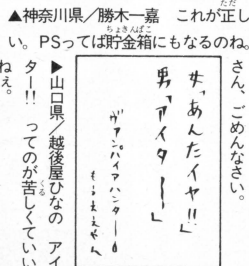 ▲神奈川県／勝木一嘉　これが正し
い。PSってば貯金箱にもなるのね。
さん、ごめんなさい。
女「あんたイヤ!!」
男「アイター」
ヴァンパイアハンターD
もうええやん
▶山口県／越後屋ひなの　アイ
ター!!　ってのが苦しくていい
ねぇ。